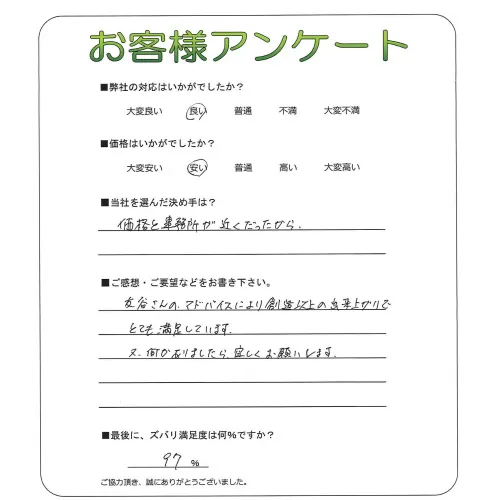 お客様アンケート
■弊社の対応はいかがでしたか?
大変良い 良い 普通 不満 大変不満
■価格はいかがでしたか?
大変安い 安い 普通 高い 大変高い
■当社を選んだ決め手は?
価格と事務所が近くだったから。
■ご感想・ご要望などをお書き下さい。
友谷さんの、アドバイスにより創造以上の出来上がりで
とても満足しています。
又、何かありましたら、宜しくお願いします。
■最後に、ズバリ満足度は何%ですか?
97 %
ご協力頂き、誠にありがとうございました。